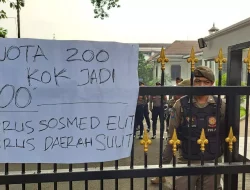 UOTA 200
KOK JADI
00
RUS SOSMED ELIT
RUS DAERAH SULIT